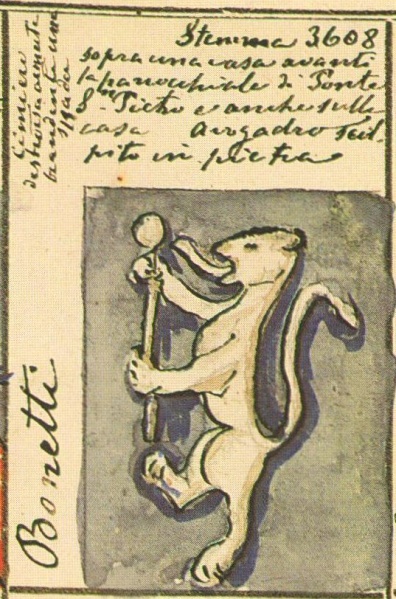 Stemma 3608
sopra una casa avanti
la parocchiale di Ponte
S. Pietro e anche sulla
casa Avogadro scol-
pito in pietra
Cimiero
destrocherio armato
brandente una
spada
Bonetti